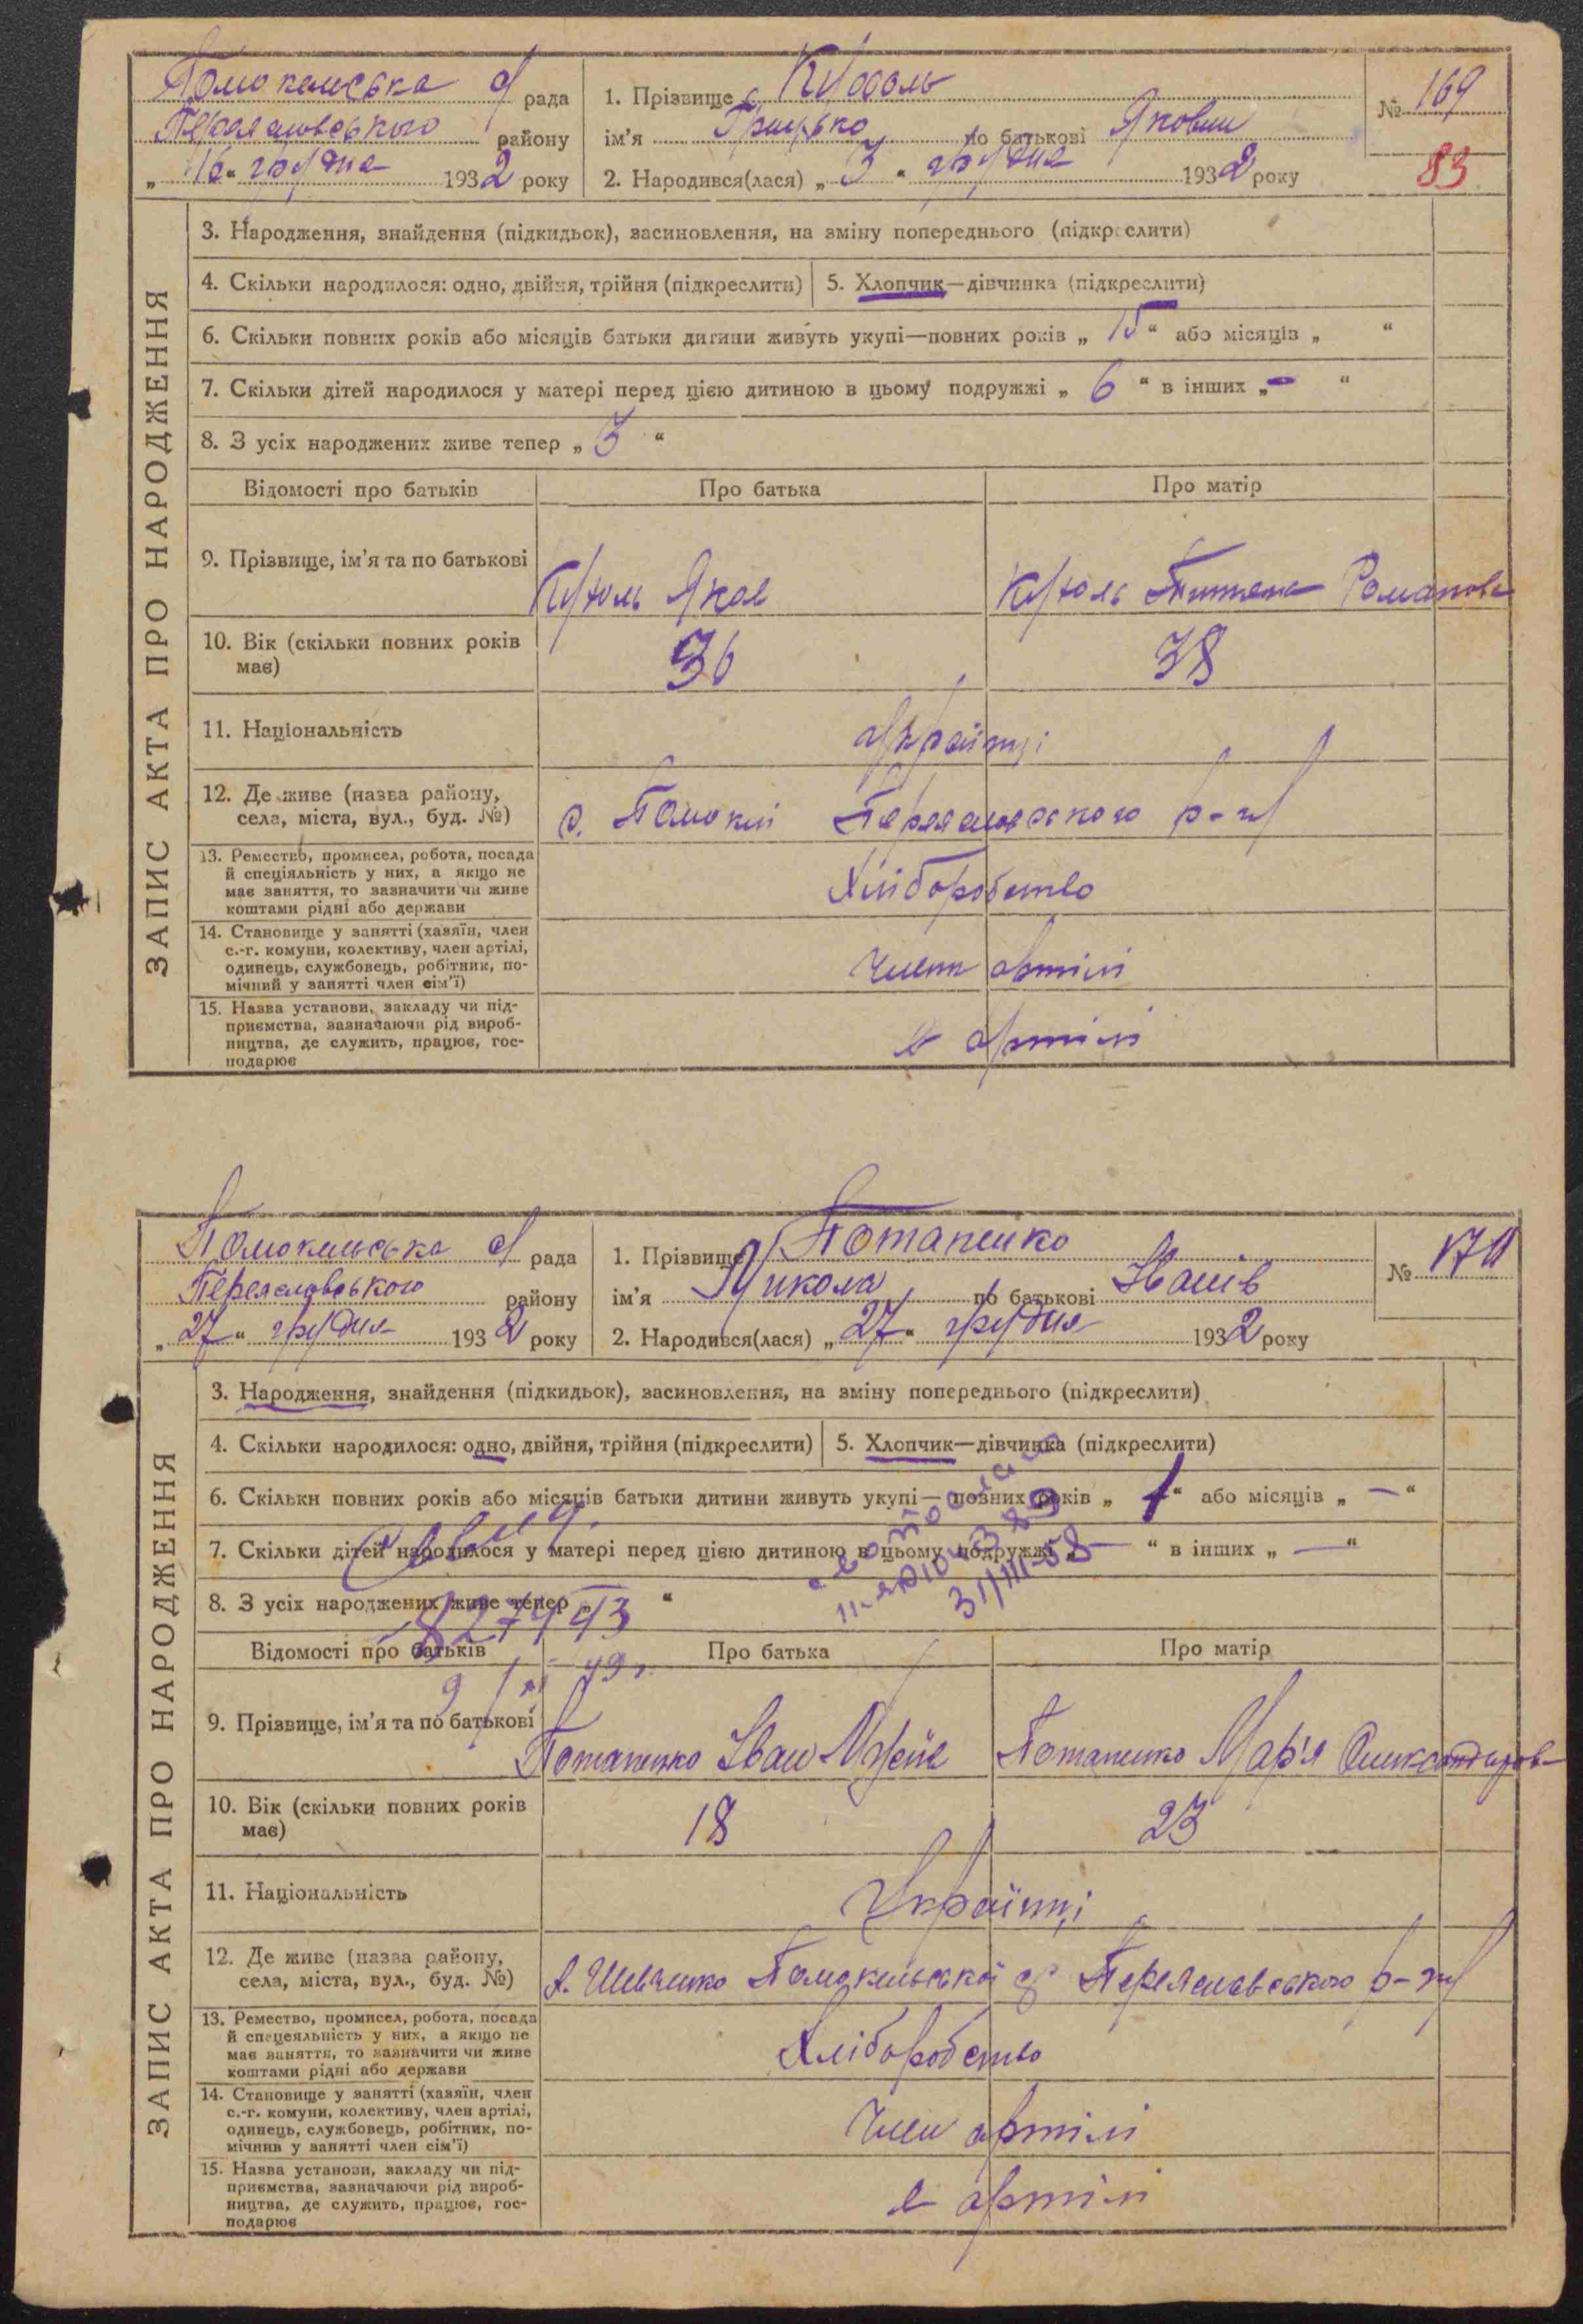 Помокельська с/рада 1. Прізвище Кузоль № 169
Переяславського району ім'я Грицько по батькові Яковим
„16“ грудня 1932 року 2. Народився(лася) „3“ грудня 1932 року 83
ЗАПИС АКТА ПРО НАРОДЖЕННЯ
3. Народження, знайдення (підкидьок), засиновлення, на зміну попереднього (підкреслити)
4. Скільки народилося: одно, двійня, трійня (підкреслити) 5. Хлопчик—дівчинка (підкреслити)
6. Скільки повних років або місяців батьки дитини живуть укупі—повних років „15“ або місяців „ “
7. Скільки дітей народилося у матері перед цією дитиною в цьому подружжі „6“ в інших „-“
8. З усіх народжених живе тепер „3“
Відомості про батьків Про батька Про матір
9. Прізвище, ім'я та по батькові Яков Романов
10. Вік (скільки повних років 36 38
має)
11. Національність українці
12. Де живе (назва району, с. Помоклі Переяславського р-ну
села, міста, вул., буд. №)
13. Ремество, промисел, робота, посада Хліборобство
й спеціяльність у них, а якщо не
має заняття, то зазначити чи живе
коштами рідні або держави
14. Становище у занятті (хазяїн, член член артілі
с.-г. комуни, колективу, член артілі,
одинець, службовець, робітник, по-
мічний у занятті член сім'ї)
15. Назва установи, закладу чи під- в артілі
приємства, зазначаючи рід вироб-
ництва, де служить, працює, гос-
подарює
Помокельська с/рада 1. Прізвище Потапенко № 170
Переяславського району ім'я Микола по батькові Іванів
„27“ грудня 1932 року 2. Народився(лася) „27“ грудня 1932 року
ЗАПИС АКТА ПРО НАРОДЖЕННЯ
3. Народження, знайдення (підкидьок), засиновлення, на зміну попереднього (підкреслити)
4. Скільки народилося: одно, двійня, трійня (підкреслити) 5. Хлопчик—дівчинка (підкреслити)
6. Скільки повних років або місяців батьки дитини живуть укупі—повних років „1“ або місяців „—“
7. Скільки дітей народилося у матері перед цією дитиною в цьому подружжі „—“ в інших „—“
31/III-58
8. З усіх народжених живе тепер „—“
Відомості про батьків Про батька Про матір
49 г.
9. Прізвище, ім'я та по батькові Потапенко Іван Потапенко Мар'я Олександров
10. Вік (скільки повних років 18 23
має)
11. Національність Українці
12. Де живе (назва району, х. Шевченко Помокельської с/р Переяславського р-ну
села, міста, вул., буд. №)
13. Ремество, промисел, робота, посада Хліборобство
й спецеяльність у них, а якщо не
має заняття, то зазначити чи живе
коштами рідні або держави
14. Становище у занятті (хазяїн, член Член артілі
с.-г. комуни, колективу, член артілі,
одинець, службовець, робітник, по-
мічнив у занятті член сім'ї)
15. Назва установи, закладу чи під- в артілі
приємства, зазначаючи рід вироб-
ництва, де служить, працює, гос-
подарює